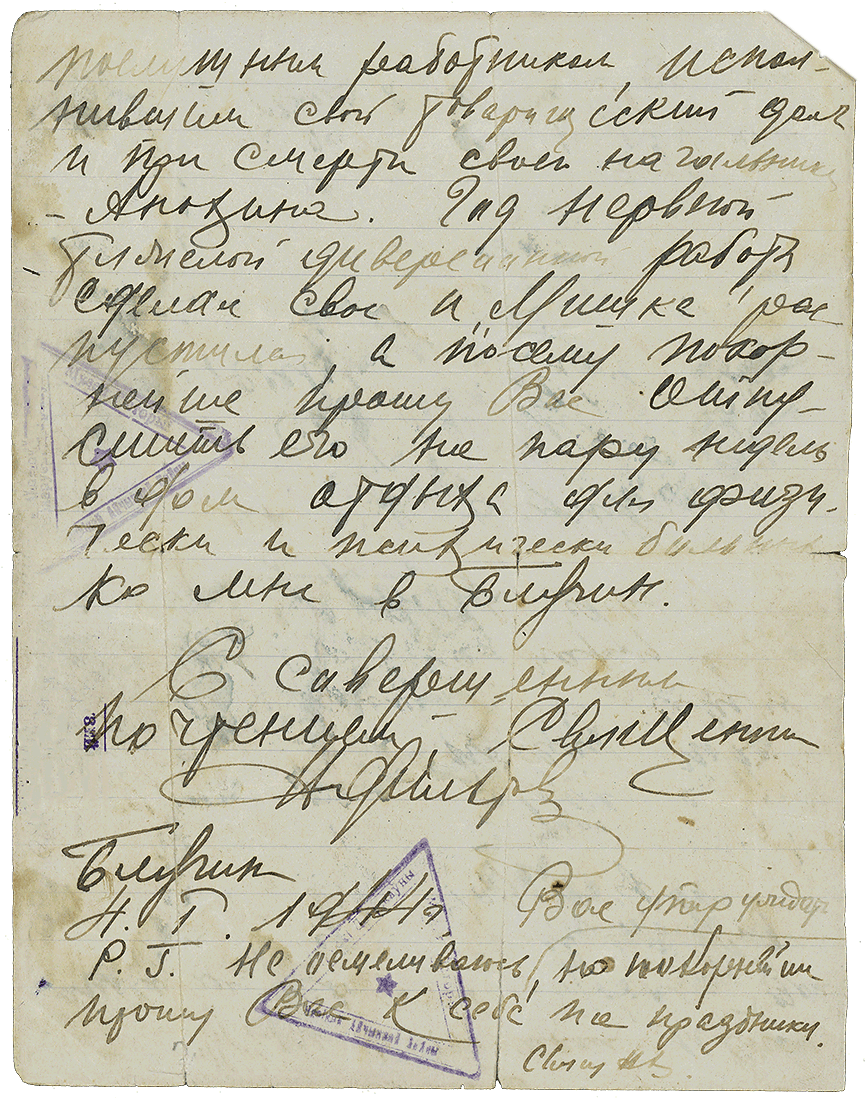 послушным работником, испол-
нившим свой товарищеский долг
и при смерти своего начальника
- Анохина. Год нервной
тяжелой диверсионной работы
сделал свое и Мишка рас
пустился, а посему покор-
нейше прошу Вас отпу-
стить его на пару недель
в дом отдыха для физи-
чески и психически больных
ко мне в Блячин.
С совершенным
почтением Священник
Блячин
Н. Г. 1944 г.
Вас утруждать
P.S. Не осмеливаюсь, но покорнейше
прошу Вас к себе на праздники.